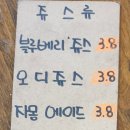 쥬스류
블루베리쥬스 3.8
오디쥬스 3.8
자몽에이드 3.8